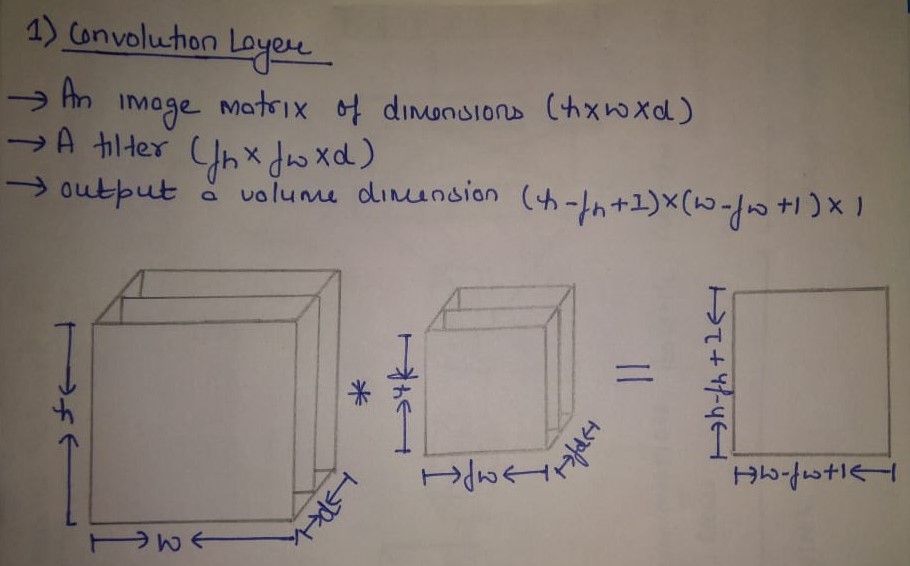 1) Convolution Layer
→ An image matrix of dimensions (h×w×d)
→ A filter (fh × fw × d)
→ output a volume dimension (h-fh+1)×(w-fw+1)×1
h
w
d
*
h
fw
fd
=
h-fh+1
w-fw+1